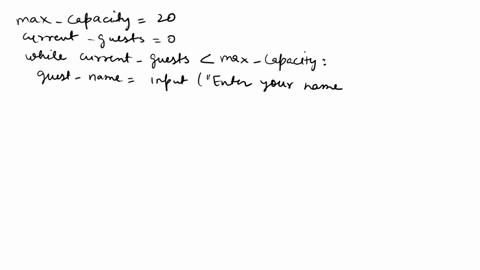 max_capacity = 20
current_guests = 0
while current_guests < max_capacity:
guest_name = input ("Enter your name